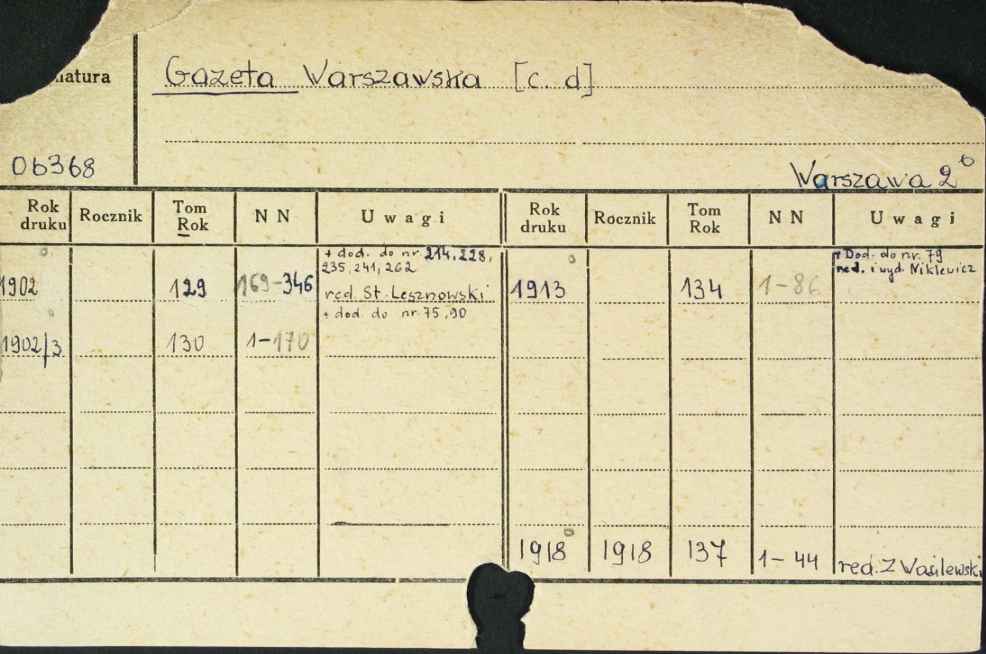 natura
Gazeta Warszawska [c. d]
Ob368
Warszawa 2
Rok druku Rocznik Tom Rok N N Uwagi Rok druku Rocznik Tom Rok N N Uwagi
+ dod. do nr 214, 228,
235, 241, 262
1902 129 169-346 red. St. Lesznowski
1913 134 1-86 + Dod. do nr. 79
red. i wyd. Niklewicz
+ dod. do nr 75, 90
1902/3 130 1-170
1918 1918 137 1-44 red. Z Wasilewski